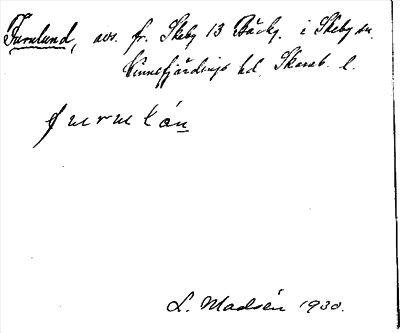 Furulund, avs. fr. Skeby 13 Bäckg. i Skeby sn.
Kinnefjärdings hd. Skarab. l.
furulún
L. Madsén 1930.